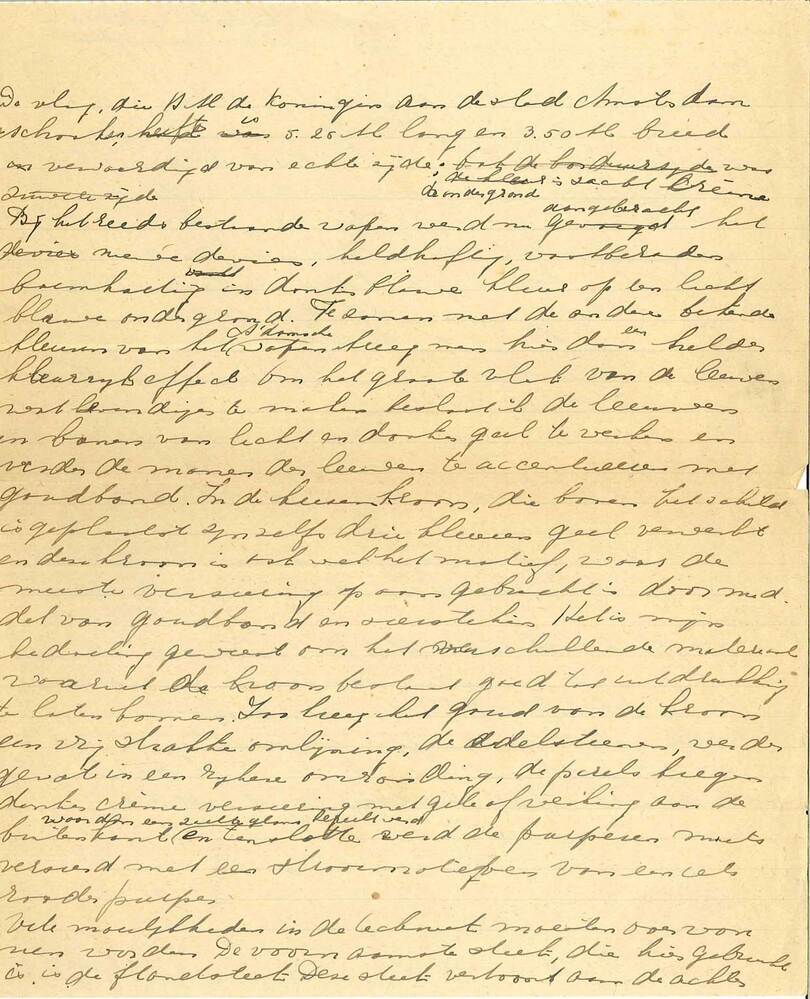 De vlag, die H M de Koningin aan de stad Amsterdam
schonk, heeft was is 5.25 M lang en 3.50 M breed
en vervaardigd van echte zijde; bat de borduurzijde was
zuivere zijde de ondergrond de kleur is zacht Crème
aangebracht
Bij het reeds bestaande wapen werd nu gevoegd het
devies nieuwe devies, heldhaftig, vastberaden
barmhartig in donkerblauwe kleur op een licht
blauwe ondergrond. Tesamen met de andere bekende
A'damsche een
kleuren van het wapen kreeg men hier dan helder
kleurrijk effect om het groote vlak van de leeuwen
wat levendiger te maken besloot ik de leeuwen
in banen van licht en donker geel te werken en
verder de manen der leeuwen te accentueeren met
goudband. In de keizerskroon, die boven het schild
is geplaatst zijn zelfs drie kleuren geel verwerkt
en deze kroon is ook wel het motief, waar de
meeste versiering op aangebracht is door mid-
del van goudband en siersteken Het is mijn
bedoeling geweest om het verschillende materiaal
waaruit de kroon bestaat goed tot uitdrukking
te laten komen. Zoo kreeg het goud van de kroon
een vrij strakke omlijning, de edelsteenen, werden
gevat in een rijkere omronding, de parels kregen
donker crème versiering met gele afwerking aan de
waardoor een zeer glans
buitenkant en tenslotte werd de purperen muts
versierd met een stroomotiefje van een iets
rooder purper
Vele moeilijkheden in de techniek moesten overwon
nen worden De voornaamste steek, die hier gebruikt
is, is de flanelsteek Deze steek vertoont aan de achter